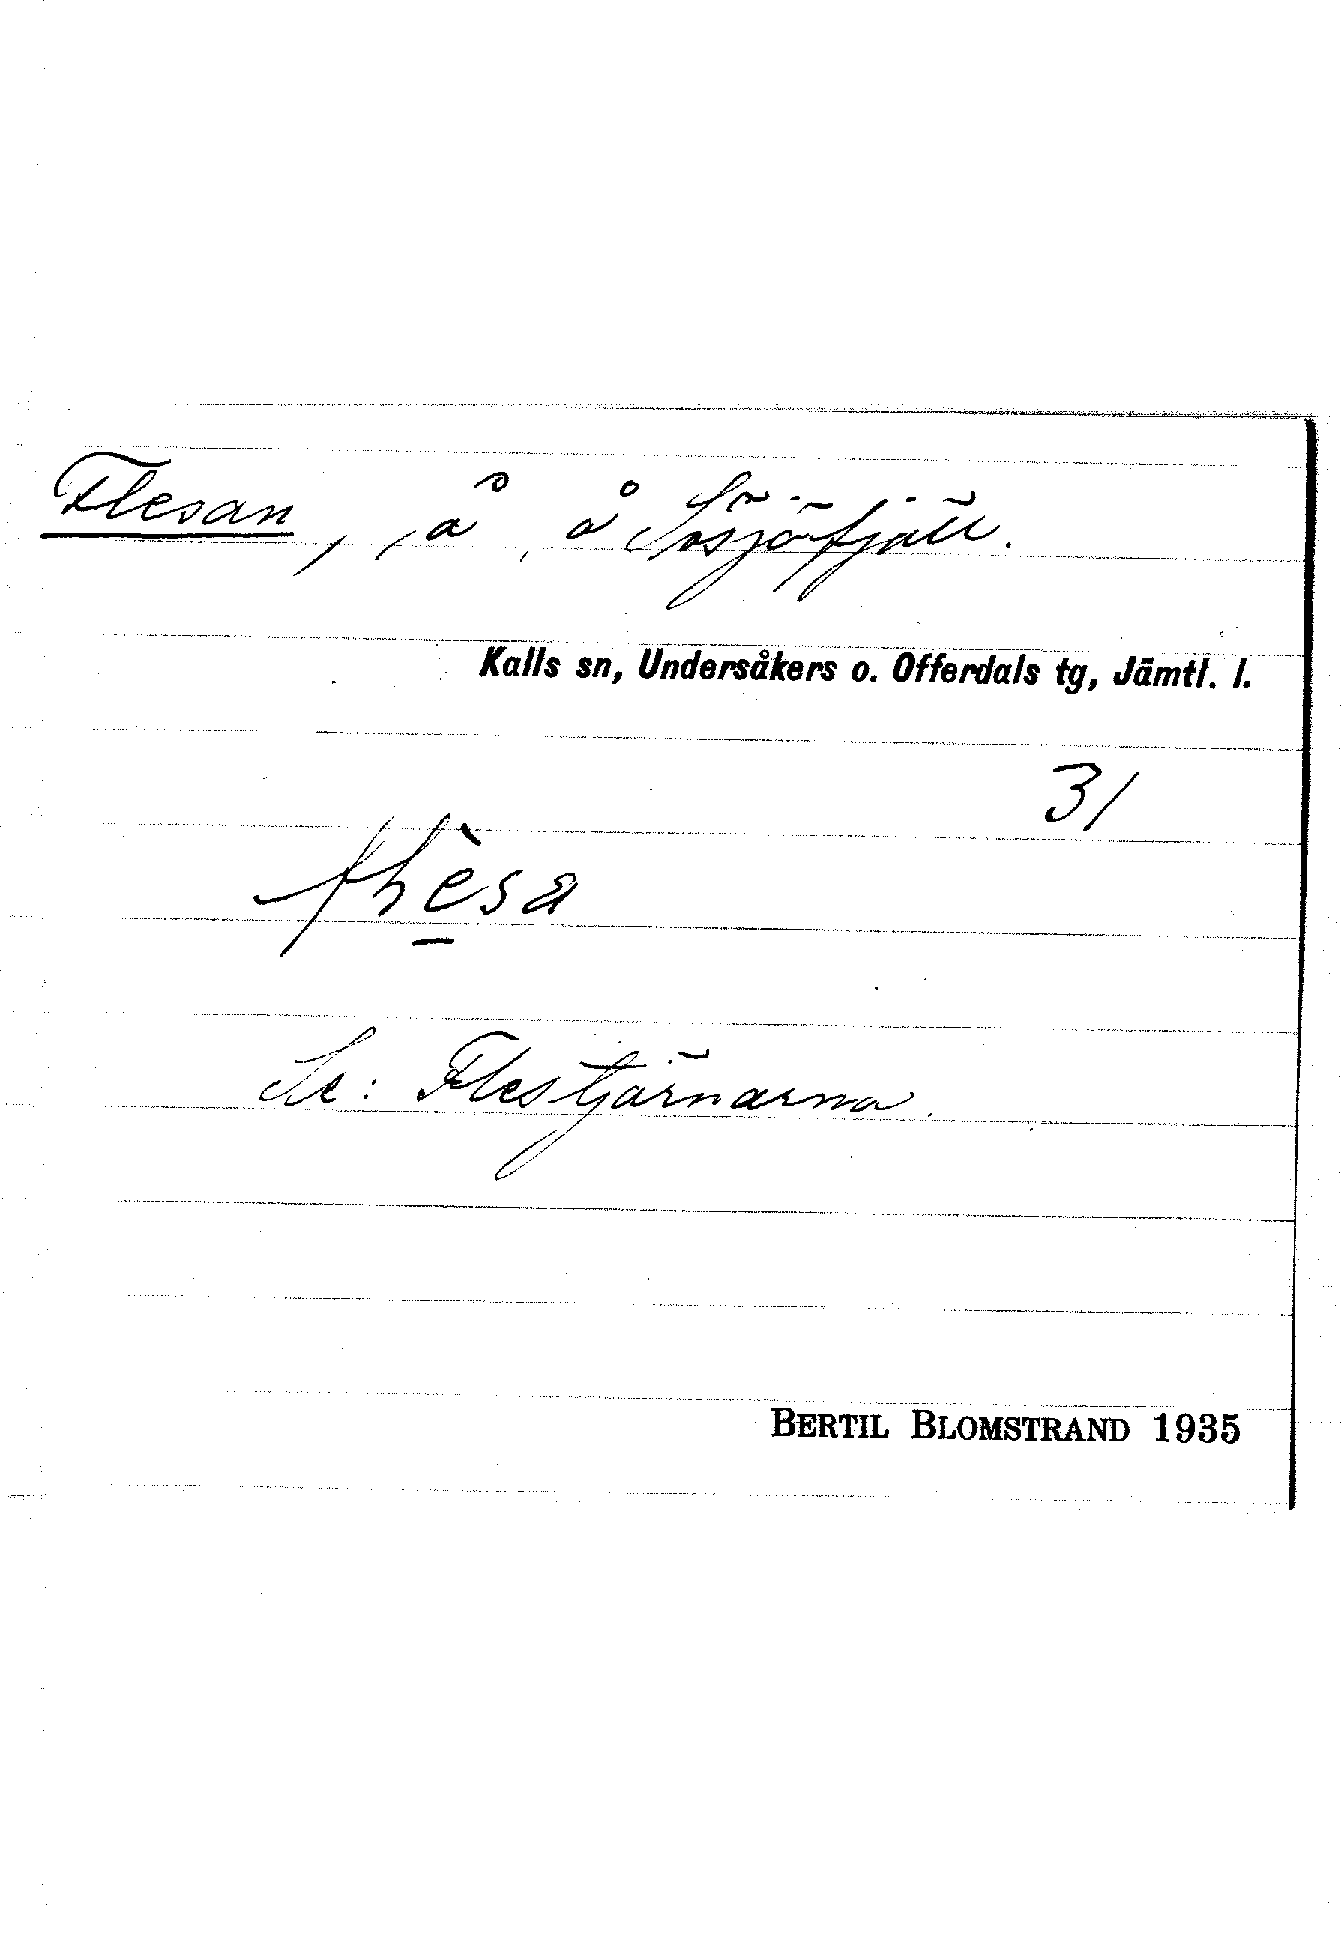 Flesan, å, å Sösjöfjäll.
Kalls sn, Undersåkers o. Offerdals tg, Jämtl. l.
31
Se: Flestjärnarna.
BERTIL BLOMSTRAND 1935